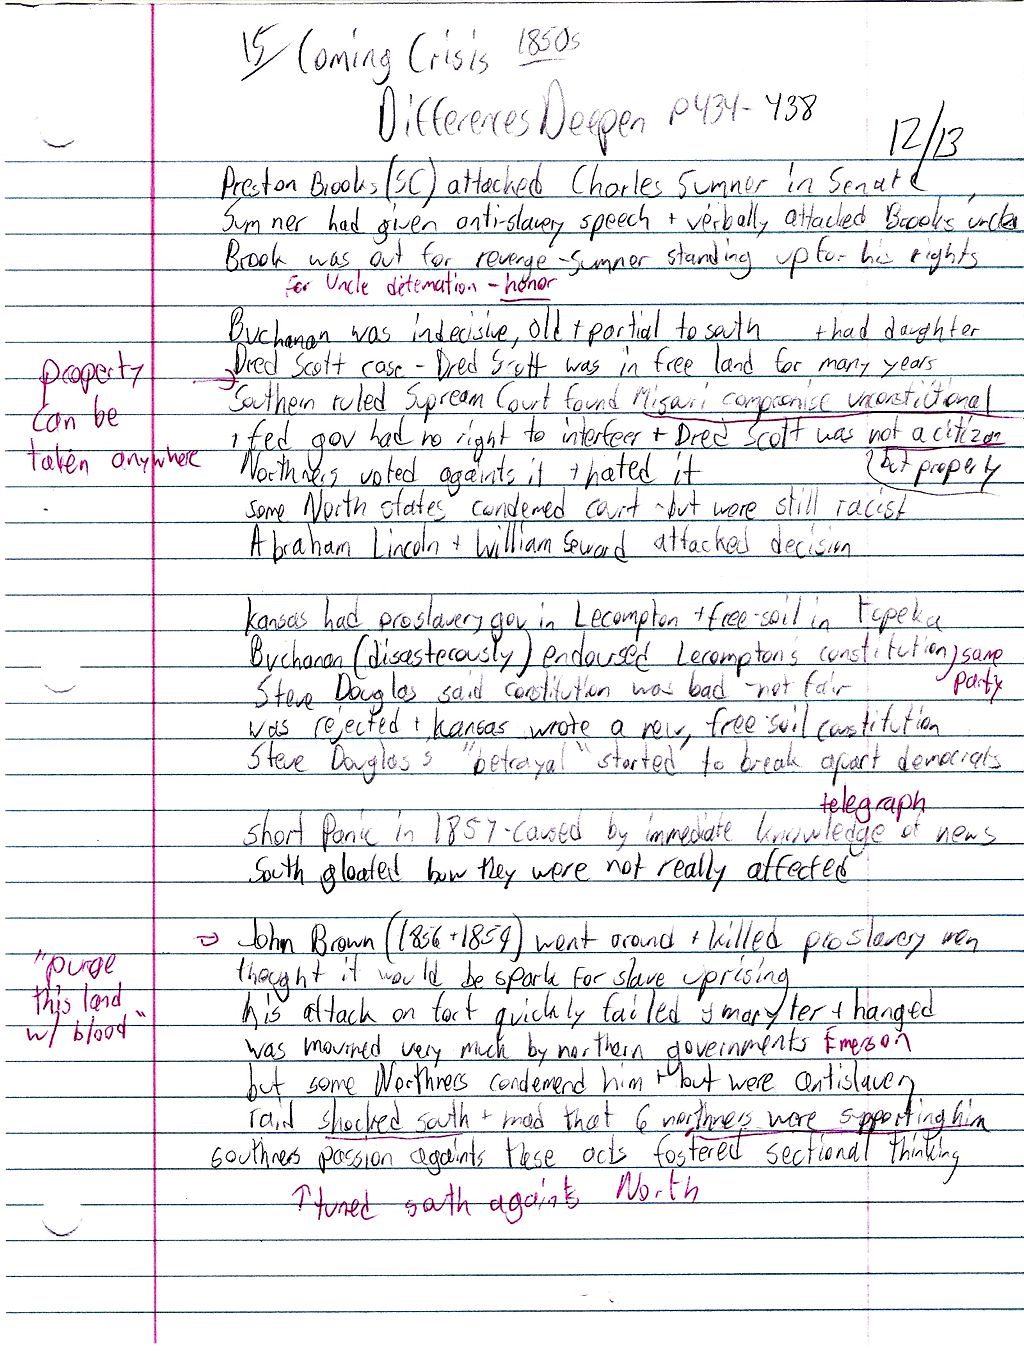 15/ Coming Crisis 1850s
Differences Deepen p434-438
12/13
Preston Brooks (SC) attacked Charles Sumner in Senate
Sumner had given anti-slavery speech + verbally attacked Brooks' uncle
Brook was out for revenge - sumner standing up for his rights
for Uncle detemation - honor
Buchanan was indecisive, old + partial to south + had daughter
property
can be
taken anywhere
Dred Scott case - Dred Scott was in free land for many years
Southern ruled Supream Court found Missauri compromise unconstitional
, fed gov had no right to interfeer + Dred Scott was not a citizan
but property
Northners voted againts it + hated it
some North states condemed court - but were still racist
Abraham Lincoln + William Seward attacked decision
Kansas had proslavery gov in Lecompton + free-soil in Topeka
Buchanan (disasterously) endoursed Lecomptons constitution
same
party
Steve Douglas said constitution was bad - not fair
was rejected + kansas wrote a new, free-soil constitution
Steve Douglas's "betrayal" started to break apart democrats
telegraph
short Panic in 1857 - caused by immediate knowledge of news
South gloated how they were not really affected
John Brown (1856 + 1859) went around + killed proslavery men
"purge
this land
w/ blood"
thought it would be spark for slave uprising
his attack on fort quickly failed + maryter + hanged
was mourned very much by northern governments Emerson
but some Northners condemend him + but were antislavery
raid shocked south + mad that 6 northners were supporting him
southners passion againts these acts fostered sectional thinking
↑ turned south againts North